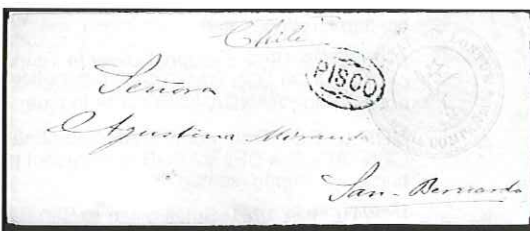 Chile
PISCO
Señora
Agustina Miranda
San-Bernardo